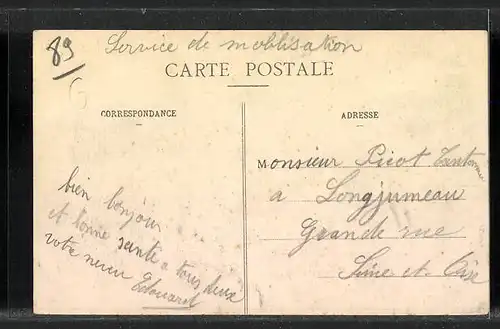 89
Service de moblisation
CARTE POSTALE
CORRESPONDANCE
ADRESSE
bien bonjour
et bonne santé a tous deux
votre neveu Edouard
Monsieur Picot
a Longjumeau
Grande rue
Seine et Oise